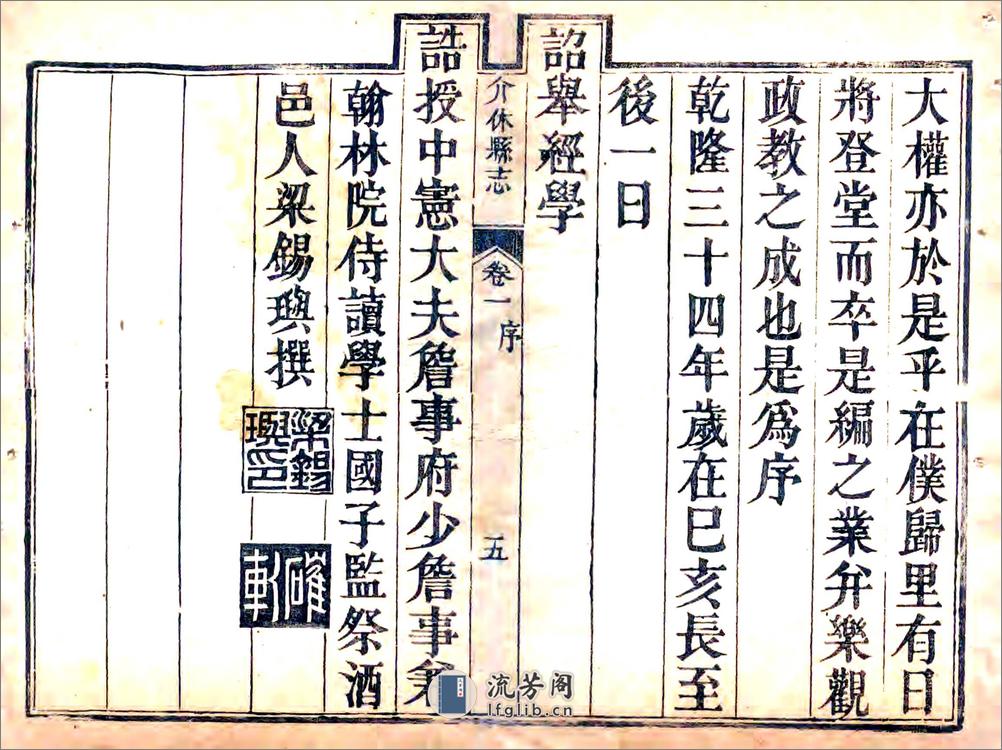 大權亦於是乎在僕歸里有日
將登堂而卒是編之業弁樂觀
政教之成也是爲序
乾隆三十四年歲在已亥長至
後一日
詔舉經學
介休縣志 卷一 序 五
誥授中憲大夫詹事府少詹事兼
翰林院侍讀學士國子監祭酒
邑人梁錫璵撰
梁錫璵印
確軒
流芳阁
lfglib.cn